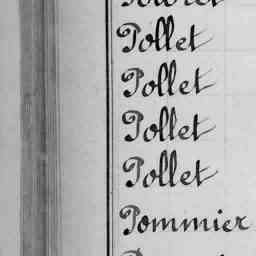 Pollet
Pollet
Pollet
Pollet
Pommier